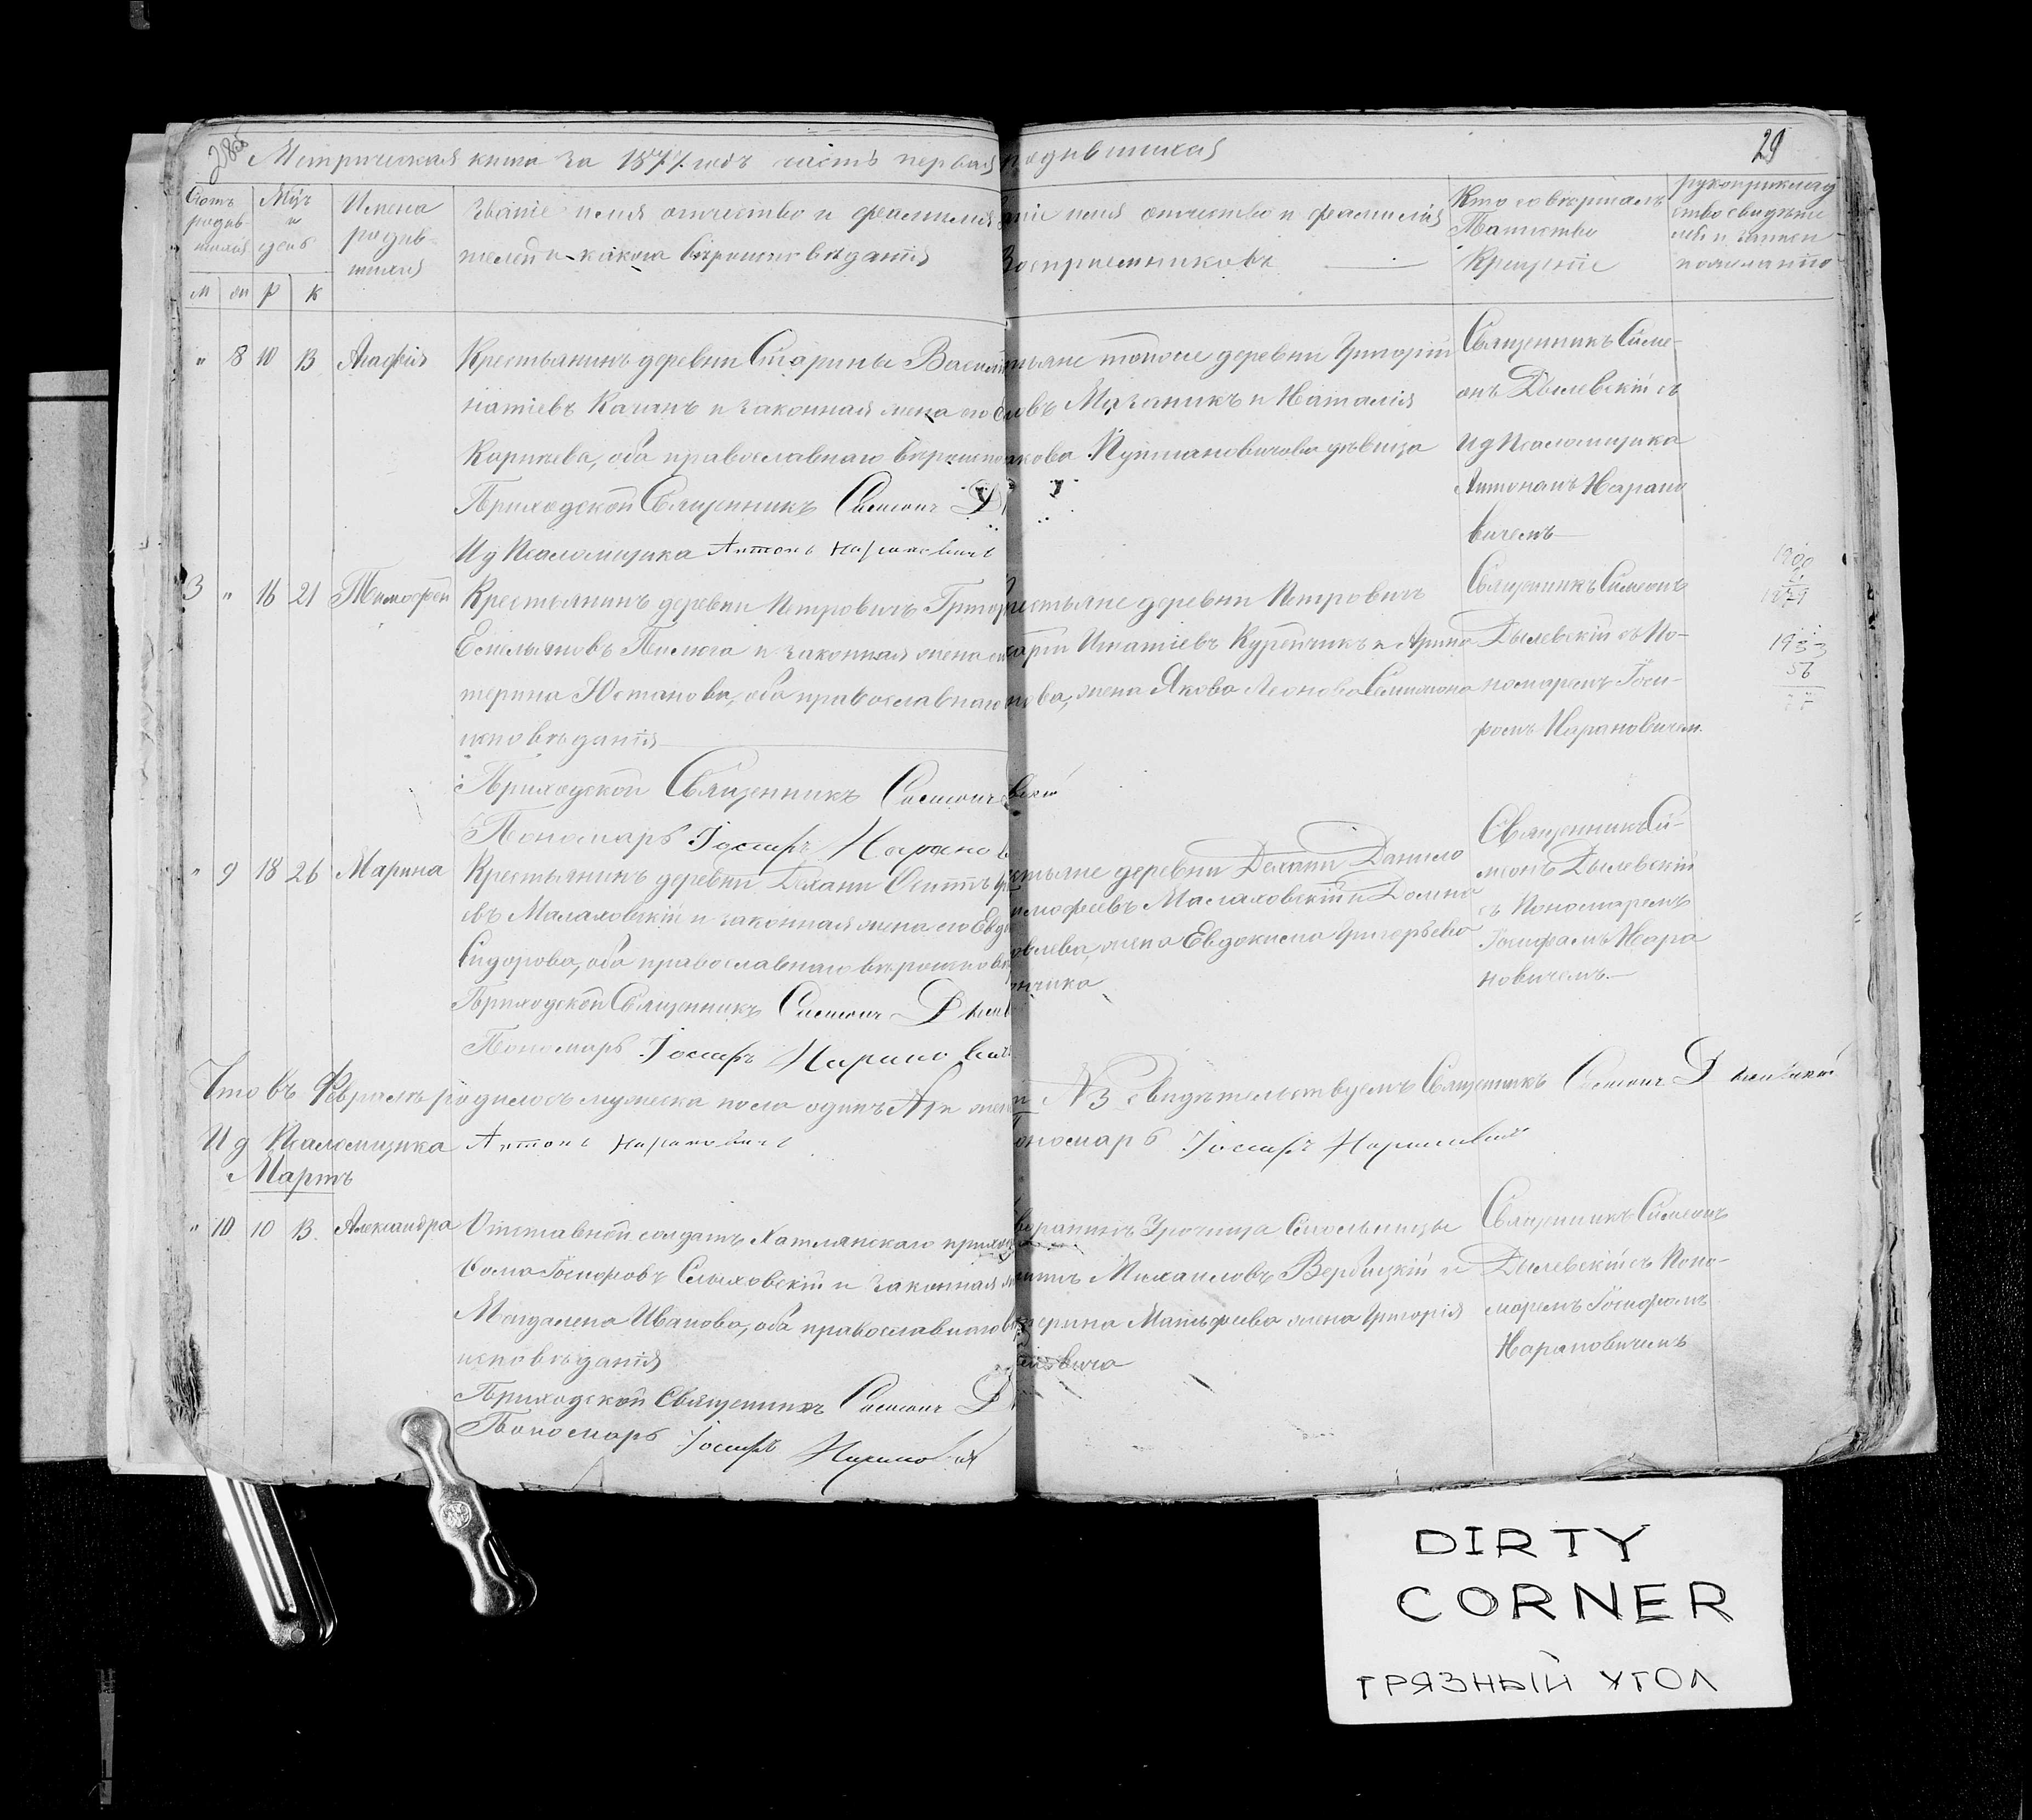 28об
29
Метрическая книга за 1877 годъ часть первая родившихся
Счетъ родив-шихся
Мѣц и день
Имена родив-шихся
Званіе имя отчество и фамилія
телей и какого вѣроисповѣданія
ніе имя отчество и фамилія
Воспріемниковъ
Кто совершалъ
Таинство
Крещеніе
рукоприклад
ство свидѣте
лей о записи
по желанію
м ж р к
" 8 10 13 Агафія
Крестьянинъ деревни Старины Васил
натіевъ Качанъ и законная жена его
Карнѣева, оба православнаго вѣроиспо
Приходской Священникъ Симеонъ Д
И д Псаломщика Антонъ Нарановичъ
тьяне тойже деревни Григорій
овъ Мазаникъ и Наталія
кова Куцмановичова дѣвица
Священникъ Симе-
онъ Дылевскій съ
И д Псаломщика
Антономъ Нарано
вичемъ
3 " 16 21 Тимофей
Крестьянинъ деревни Петровичъ Григор
Емельяновъ Пилюга и законная жена
терина Юстинова, оба православнаго
исповѣданія
Приходской Священникъ Симеонъ
Пономарь Іосифъ Нарано
естьяне деревни Петровичъ
Игнатіевъ Курейчикъ и Арина
нова, жена Якова Леонова
Священникъ Симеонъ
Дылевскій съ По-
номаремъ Іоси-
фомъ Нарановичем.
1900
1933
56
77
" 9 18 26 Марина
Крестьянинъ деревни Дехани Осипъ
евъ Малаховскій и законная жена его Евд
Сидорова, оба православнаго вѣроисповѣ
Приходской Священникъ Симеонъ Дылев
Пономарь Іосифъ Нарановичъ
стьяне деревни Дехани Данило
имофеевъ Малаховскій и Домна
овлева, жена Евдокима Григорьева
Священникъ Си-
меонъ Дылевскій
съ Пономаремъ
Іосифомъ Нара
новичемъ
Что въ Февралѣ родилось мужеска пола одинъ №1 и жен
№3 свидѣтельствуемъ Священникъ Симеонъ Дылевскій
И д Псаломщика Антонъ Нарановичъ
ономарь Іосифъ Нарановичъ
Мартъ
" 10 10 13. Александра
Отставной солдатъ Хатлянскаго прихода
Фома Іосифовъ Слыховскій и законная
Магдалена Иванова, оба православнаго
исповѣданія
Приходской Священникъ Симеонъ Д
Пономарь Іосифъ Нарановичъ
воранинъ Урочища Смольницы
Михаиловъ Вербицкій и
терина Матѳеева жена Григорія
Священникъ Симеонъ
Дылевскій съ Поно-
маремъ Іосифомъ
Нарановичемъ
DIRTY
CORNER
ГРЯЗНЫЙ УГОЛ